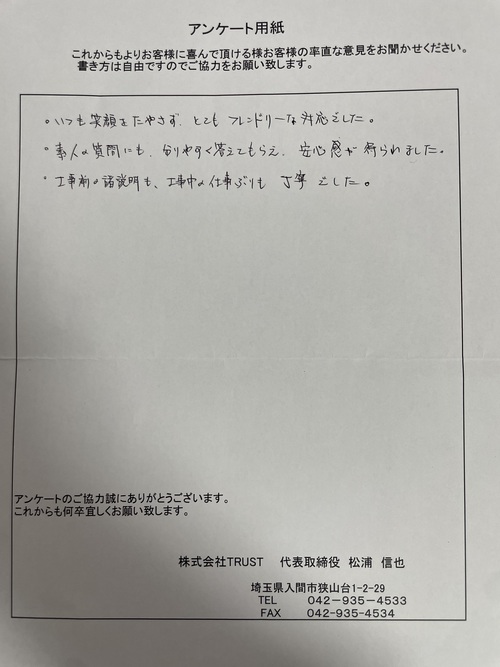 アンケート用紙
これからもよりお客様に喜んで頂ける様お客様の率直な意見をお聞かせください。
書き方は自由ですのでご協力をお願い致します。
・いつも笑顔をたやさず、とてもフレンドリーな対応でした。
・素人の質問にも、分りやすく答えてもらえ、安心感が得られました。
・工事前の諸説明も、工事中の仕事ぶりも 丁寧でした。
アンケートのご協力誠にありがとうございます。
これからも何卒宜しくお願い致します。
株式会社TRUST 代表取締役 松浦 信也
埼玉県入間市狭山台1-2-29
TEL 042-935-4533
FAX 042-935-4534